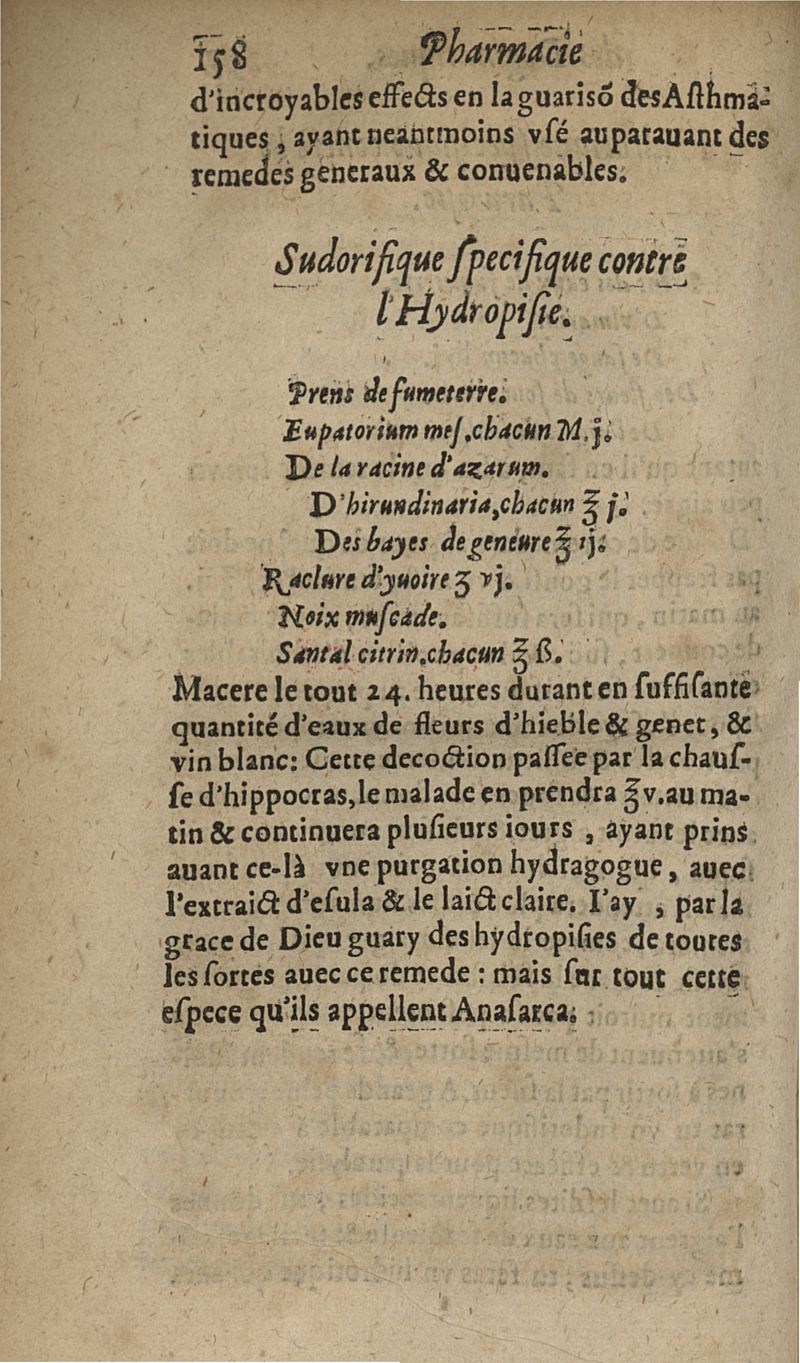 158 Pharmacie
d'incroyables effects en la guarisõ des Asthma-
tiques, ayant neantmoins vſé auparauant des
remedes generaux & conuenables.
Sudorifique ſpecifique contre
l'Hydropiſie.
Prens de fumeterre.
Eupatorium meſ.chacun M.j.
De la racine d'azarum.
D'hirundinaria,chacun ℥ j.
Des bayes de geneure ℥ ij.
Raclure d'yuoire ʒ vj.
Noix muſcade.
Santal citrin.chacun ℥ ß.
Macere le tout 24. heures durant en ſuffiſante
quantité d'eaux de fleurs d'hieble & genet, &
vin blanc: Cette decoction paſſee par la chauſ-
ſe d'hippocras,le malade en prendra ℥ v.au ma-
tin & continuera pluſieurs iours , ayant prins
auant ce-là vne purgation hydragogue, auec
l'extraict d'eſula & le laict claire. I'ay , par la
grace de Dieu guary des hydropiſies de toutes
les ſortes auec ce remede : mais ſur tout cette
eſpece qu'ils appellent Anaſarca.